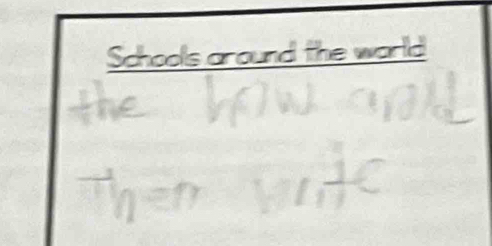 Schools around the world
the
Then write